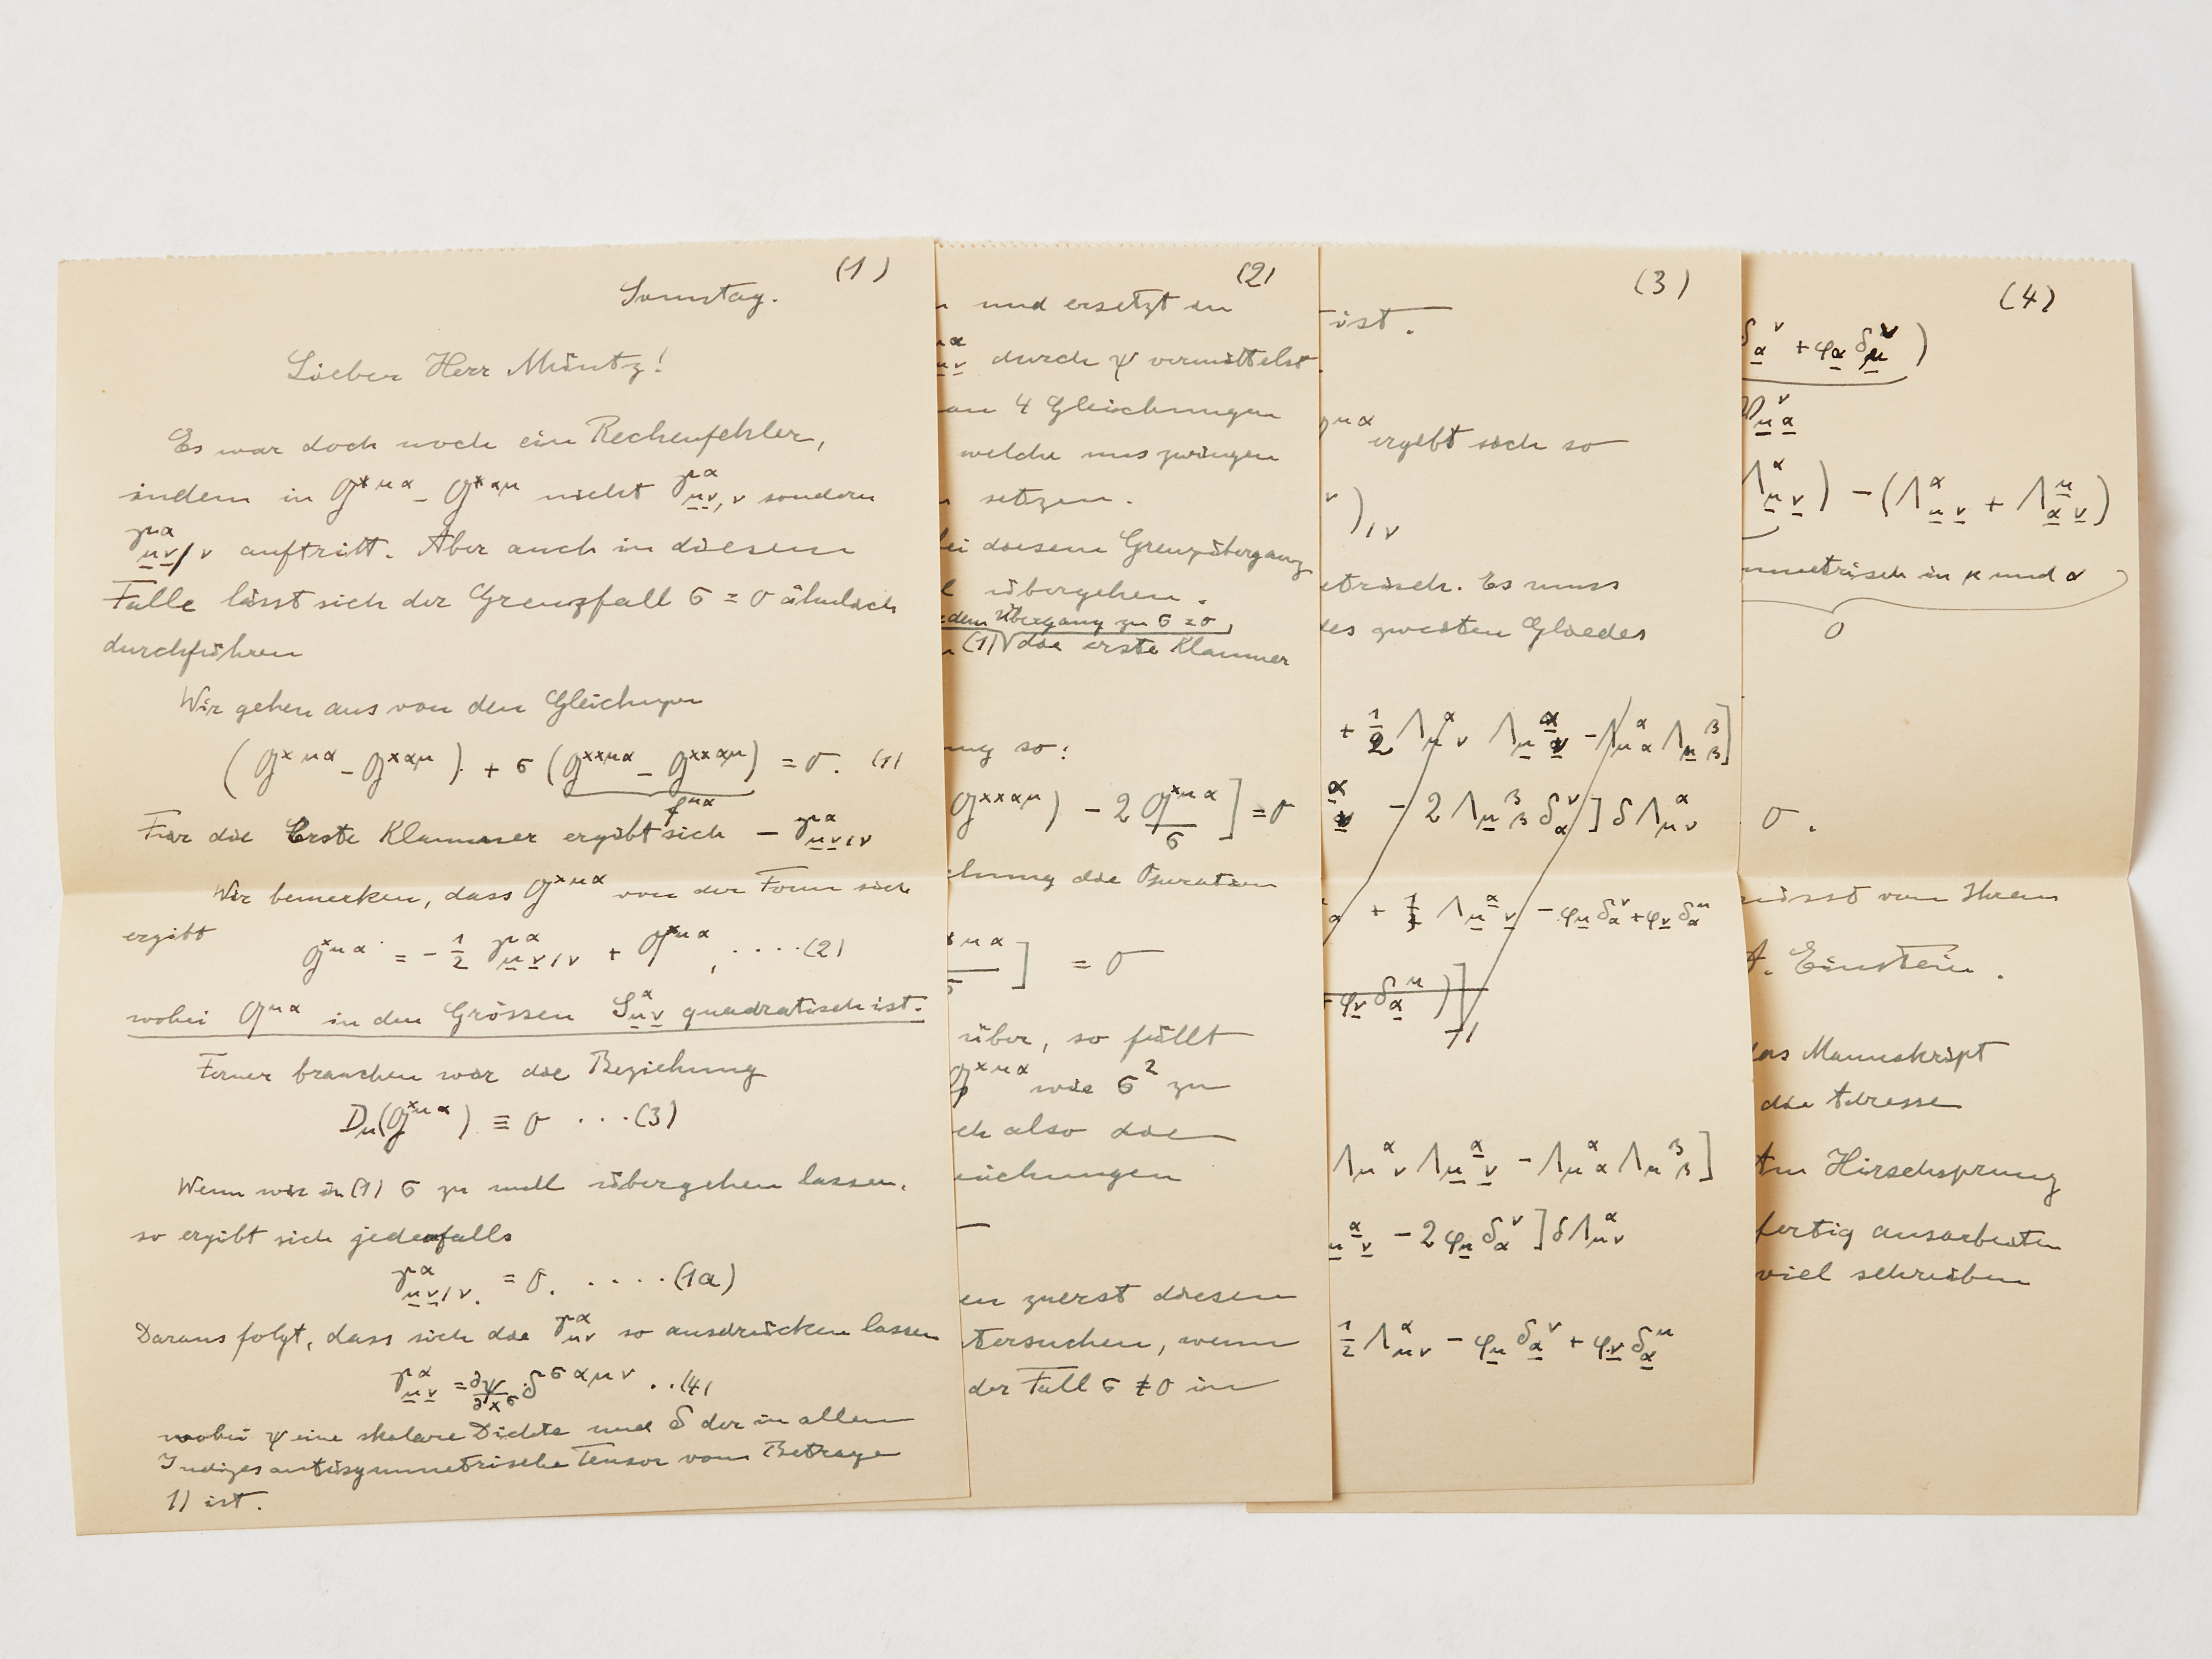 (1)
Sonntag.
Lieber Herr Müntz!
Es war doch noch ein Rechenfehler,
indem in G*μα - G*αμ nicht 𝔖αμν,ν sondern
𝔖αμν/ν auftritt. Aber auch in diesem
Falle lässt sich der Grenzfall σ = 0 ähnlich
durchführen
Wir gehen aus von den Gleichungen
(G*μα - G*αμ) + σ (G**μα - G**αμ) = 0. (1)
Für die Erste Klammer ergibt sich - 𝔖αμν/ν
Wir bemerken, dass G*μα von der Form sich
ergibt
G*μα = - 1/2 𝔖αμν/ν + G*μα, . . . . (2)
wobei Gμα in den Grössen Sαμν quadratisch ist.
Ferner brauchen wir die Beziehung
Dμ(G*μα) ≡ 0 . . . (3)
Wenn wir in (1) σ zu null übergehen lassen,
so ergibt sich jedenfalls
𝔖αμν/ν = 0. . . . . (1a)
Daraus folgt, dass sich die 𝔖αμν so ausdrücken lassen
𝔖αμν = ∂ψ/∂xσ δσαμν . . (4)
wobei ψ eine skalare Dichte und δ der in allen
Indizes antisymmetrische Tensor vom Betrage
1) ist.
(2)
und ersetzt in
durch ψ vermittelst
4 Gleichungen
welche uns zwingen
setzen.
diesem Grenzübergang
übergehen.
dem Übergang zu σ = 0,
(1) die erste Klammer
so:
G**αμ) - 2 G*μα/σ ] = 0
die Operation
] = 0
über, so fällt
G*μα wie σ2 zu
also die
zuerst diesen
wenn
der Fall σ ≠ 0 in
(3)
ist.
μα ergibt sich so
ν)/ν
Es muss
zweiten Gliedes
+ 1/2 Λμαν Λμαν - Λμαα Λμββ]
- 2 Λμββ δαν ] δ Λμαν
+ 1/2 Λμαν - φμ δαν + φν δαμ
φν δαμ )]
Λμαν Λμαν - Λμαα Λμββ]
- 2 φμ δαν ] δ Λμαν
1/2 Λμαν - φμ δαν + φν δαμ
(4)
δαν + φα δμν )
Λαμν) - (Λαμν + Λμαν)
in μ und α
0
0.
von Ihrem
A. Einstein.
Manuskript
die Adresse
Am Hirschsprung
fertig ausarbeiten
viel schreiben